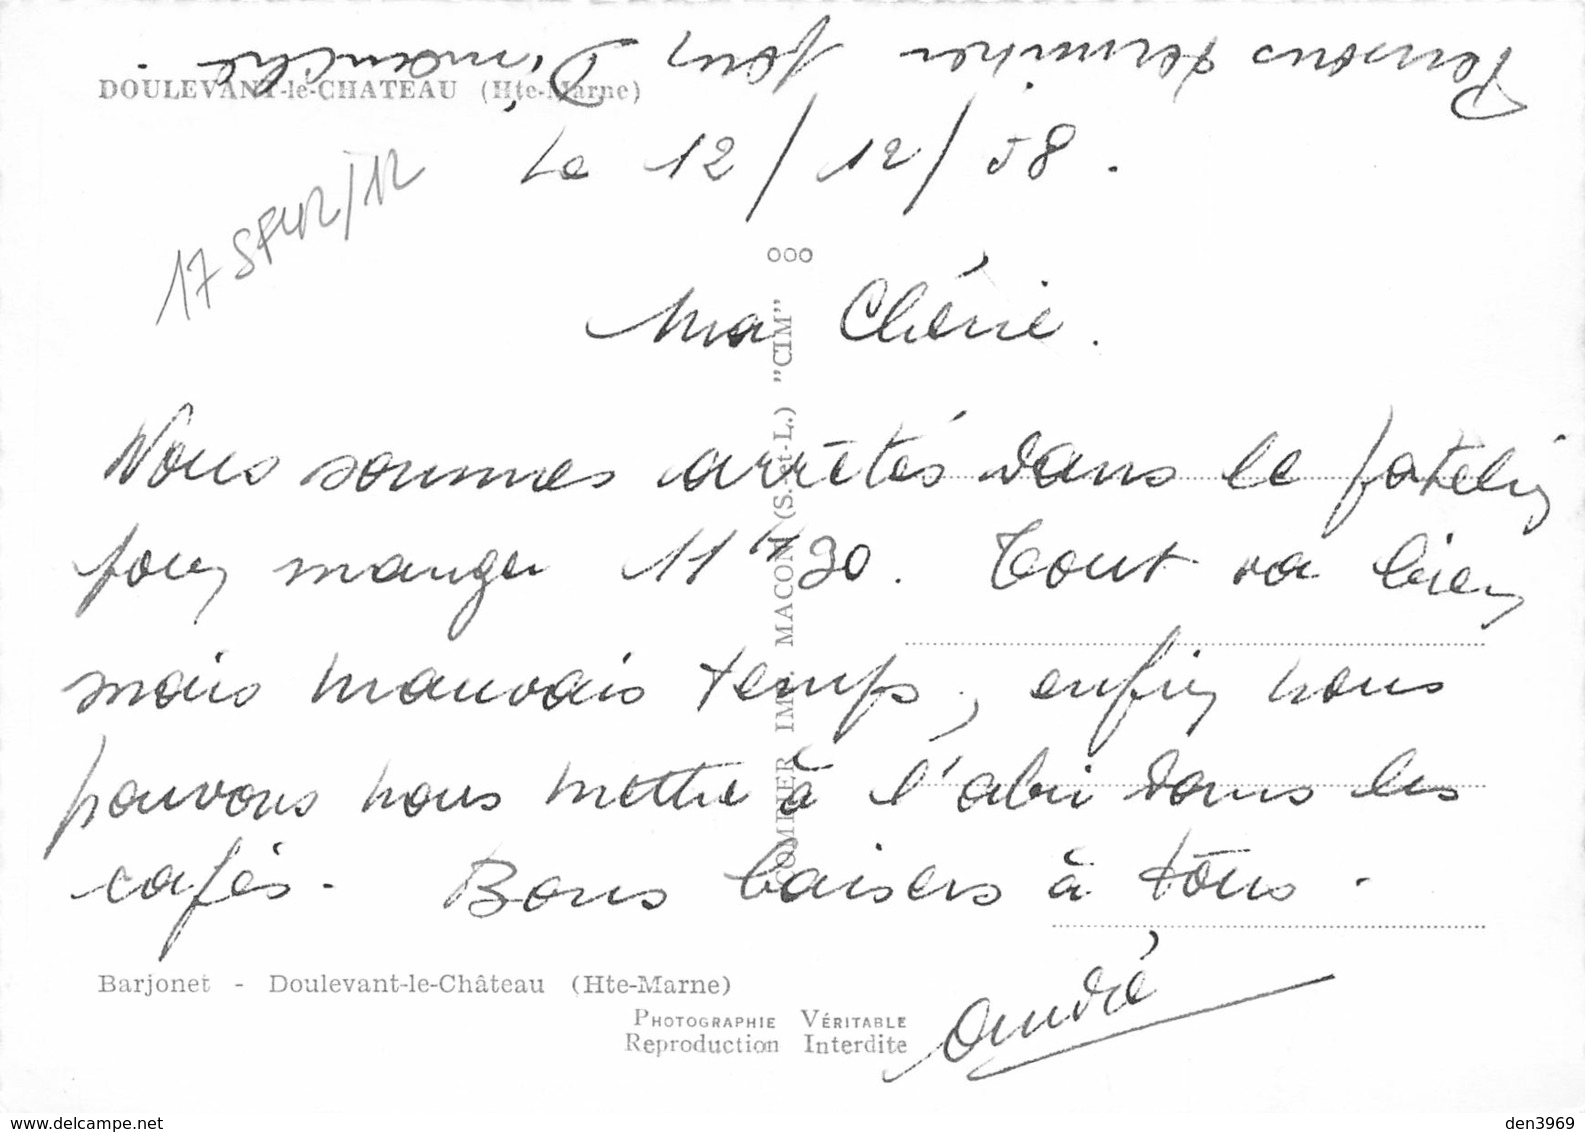 Pensons terminer pour Dimanche.
DOULEVANT-le-CHATEAU (Hte-Marne)
Le 12/12/58.
ooo
Ma Chérie.
Nous sommes arrêtés dans le
pour manger 11 H 30. Tout va bien
mais mauvais temps, enfin nous
pouvons nous mettre à l'abri dans les
cafés. Bons baisers à tous.
André
COMBIER IMP. MACON (S.-et-L.) "CIM"
Barjonet - Doulevant-le-Château (Hte-Marne)
PHOTOGRAPHIE VÉRITABLE
Reproduction Interdite
www.delcampe.net
den3969